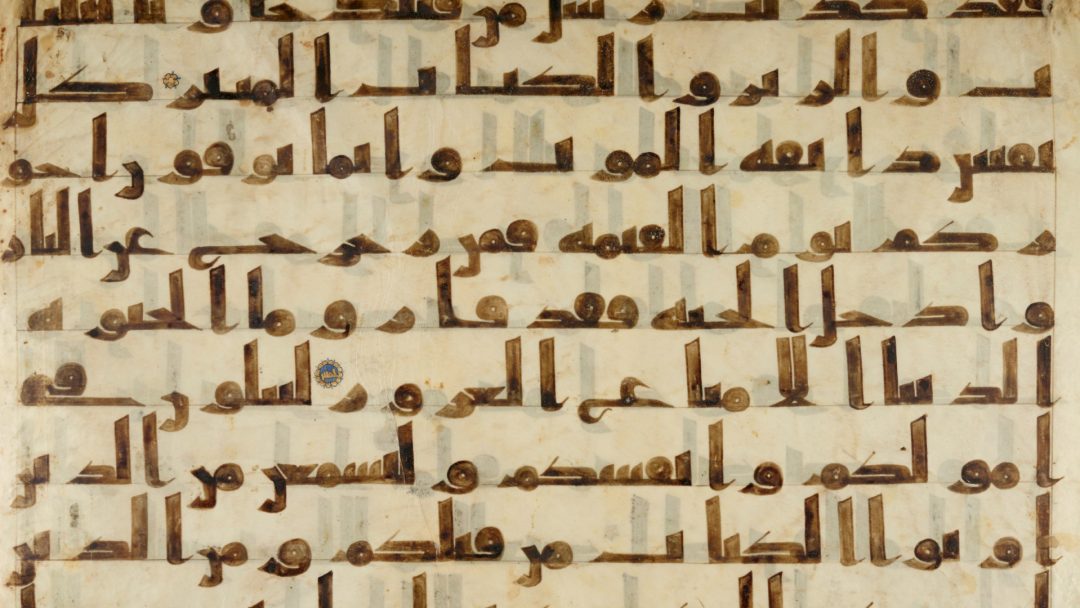 فقد كذب رسل من قبلك جاو بالبينـ
ـت والزبر والكتب المنير كل
نفس ذايقه الموت وانما توفون اجو
ركم يوم القيمه فمن زحزح عن النار
وادخل الجنه فقد فاز وما الحيوه
الدنيا الا متع الغرور لتبلون في
امولكم وانفسكم ولتسمعن من الذين
اوتوا الكتب من قبلكم ومن الذين